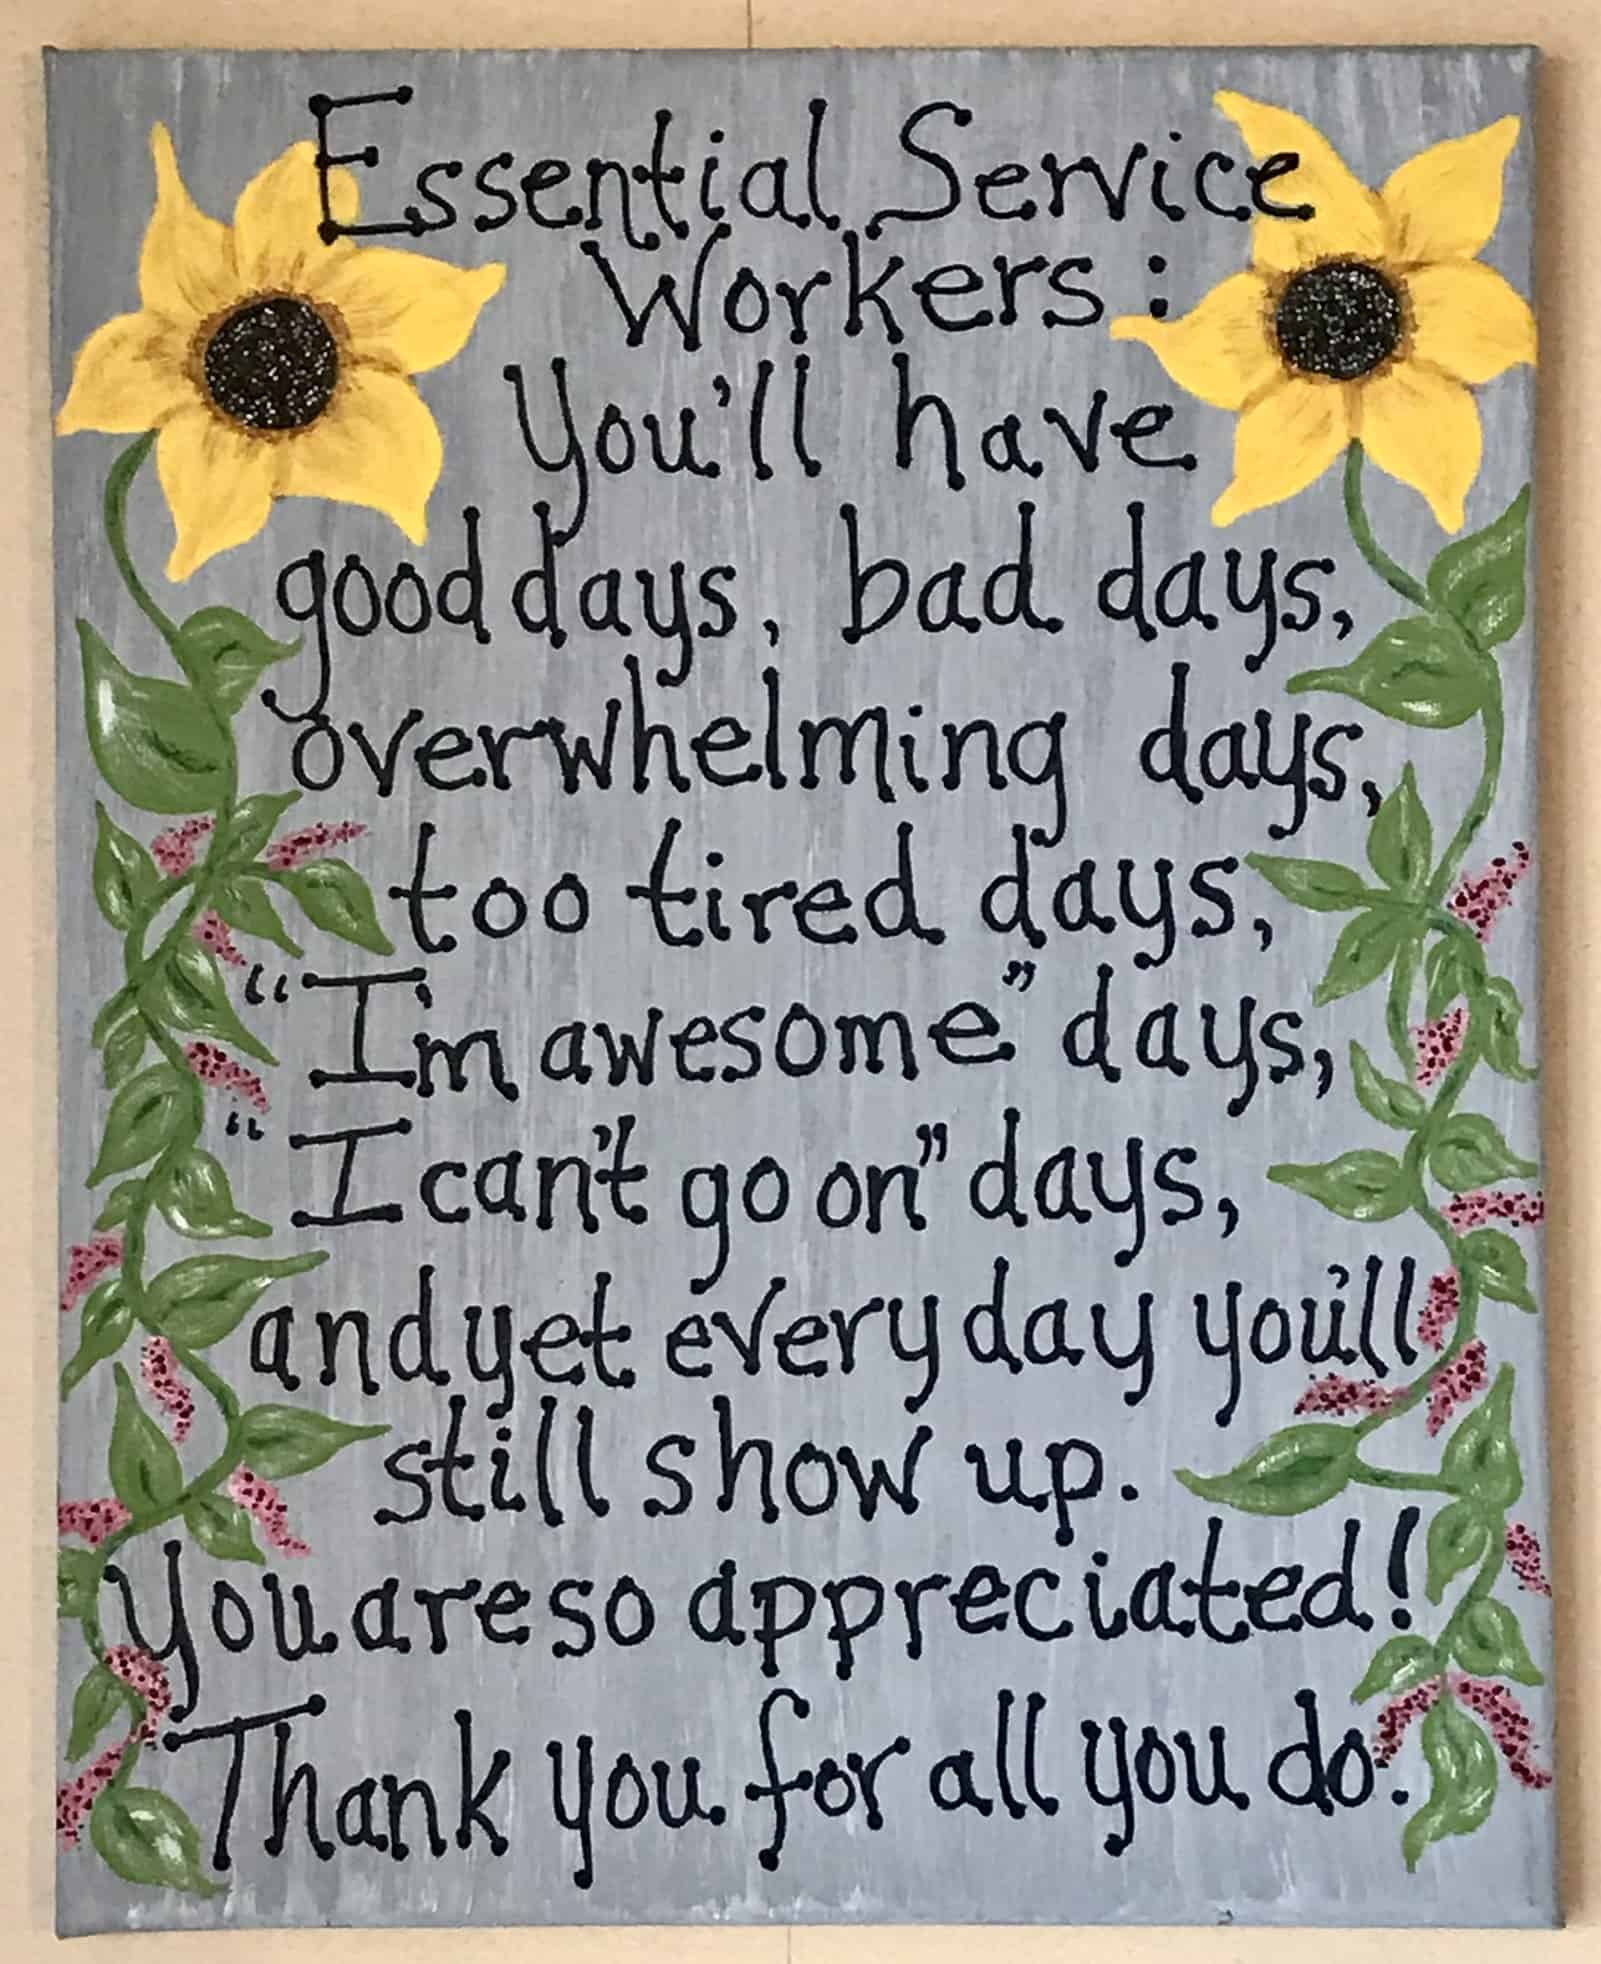 Essential Service
Workers:
You'll have
good days, bad days,
overwhelming days,
too tired days,
“I'm awesome” days,
“I can't go on” days,
and yet every day you'll
still show up.
You are so appreciated!
Thank you for all you do.